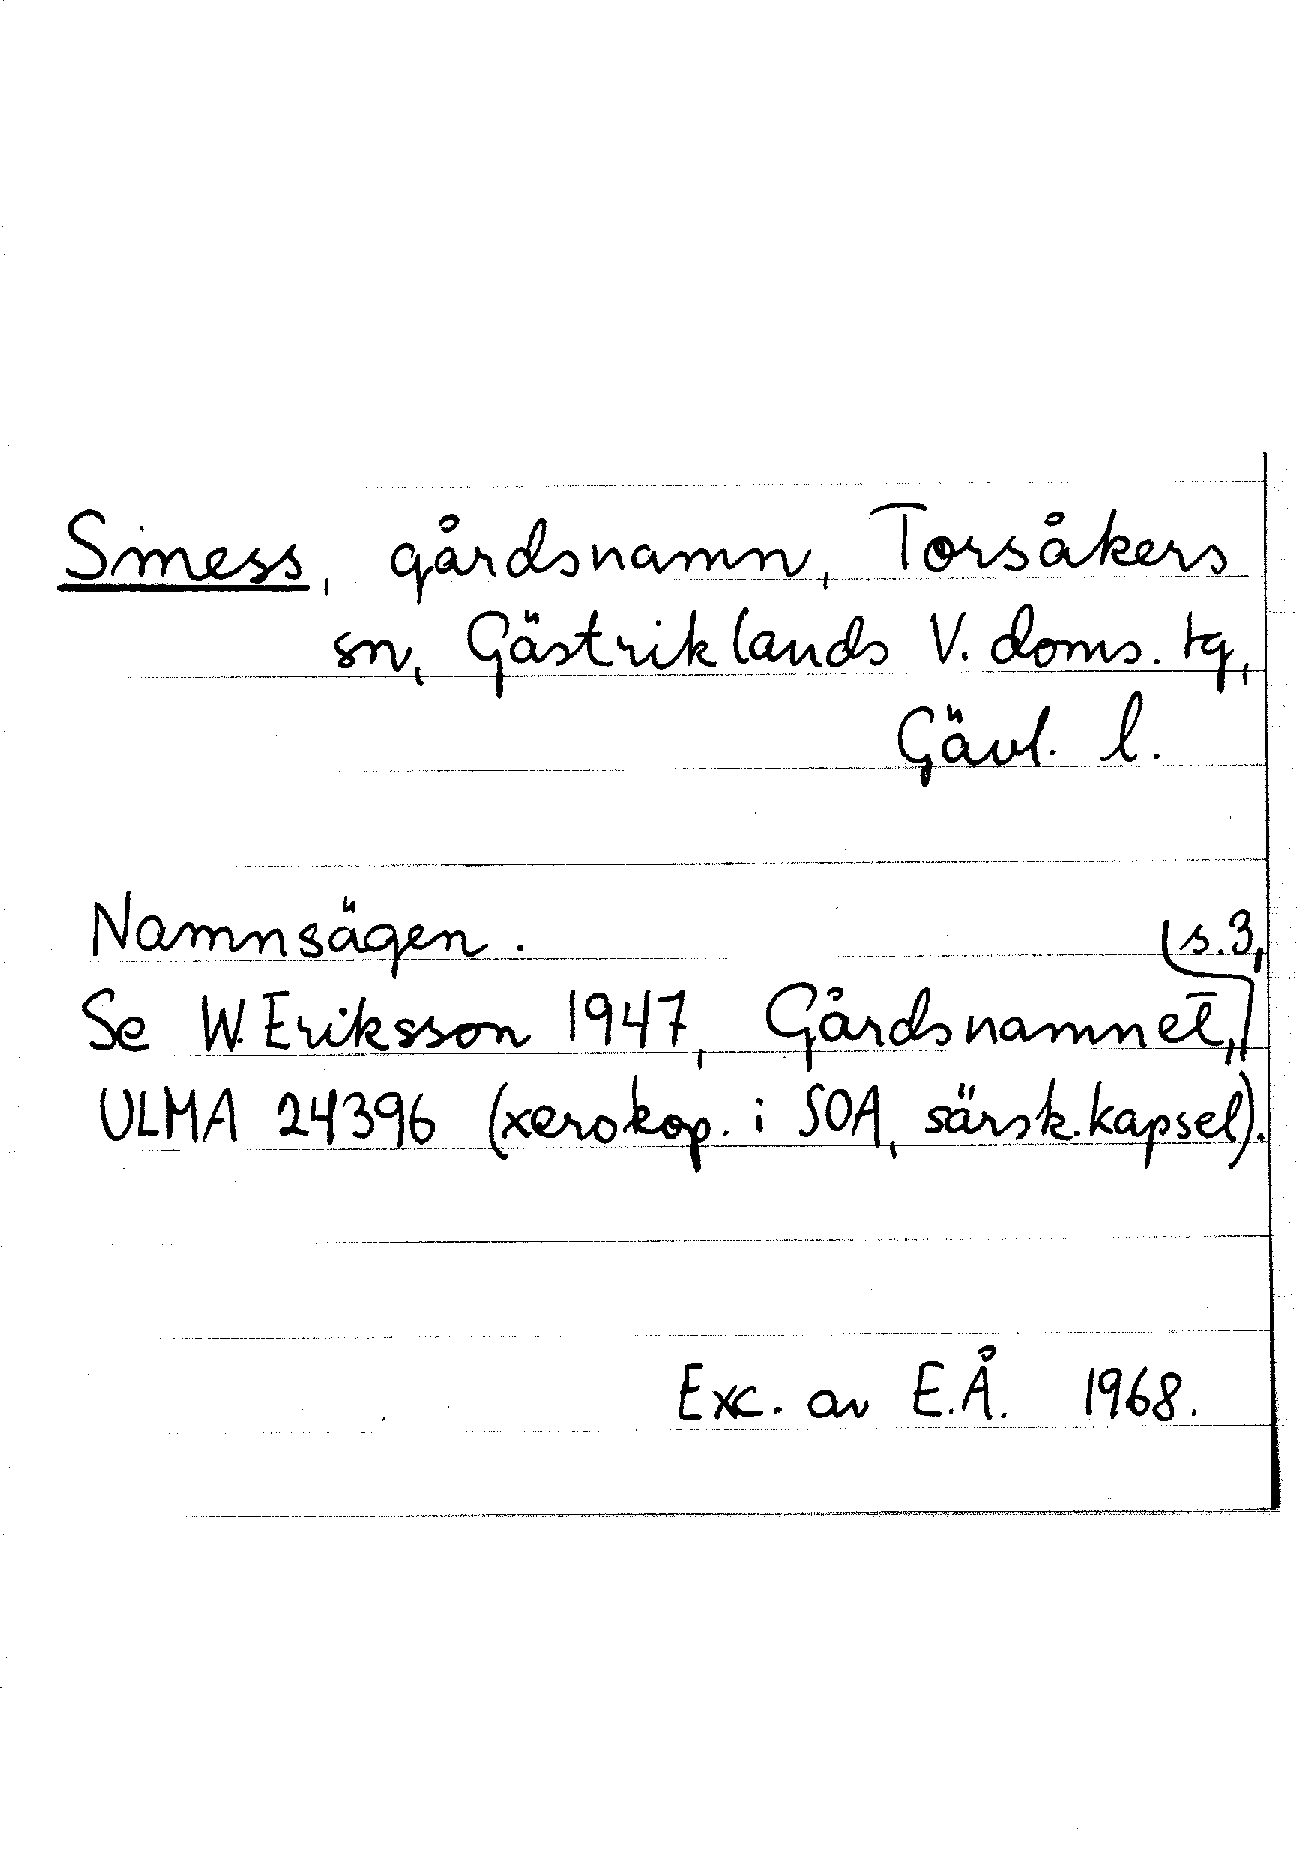 Siness, gårdsnamn, Torsåkers
sn, Gästriklands V. doms. tg,
Gävl. l.
Namnsägen.
Se W. Eriksson 1947, Gårdsnamnet, s. 3,
ULMA 24396 (xerokop. i SOA, särsk. kapsel).
Exc. av E.Å. 1968.